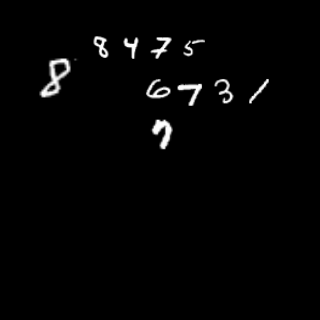 8475
8
6731
7